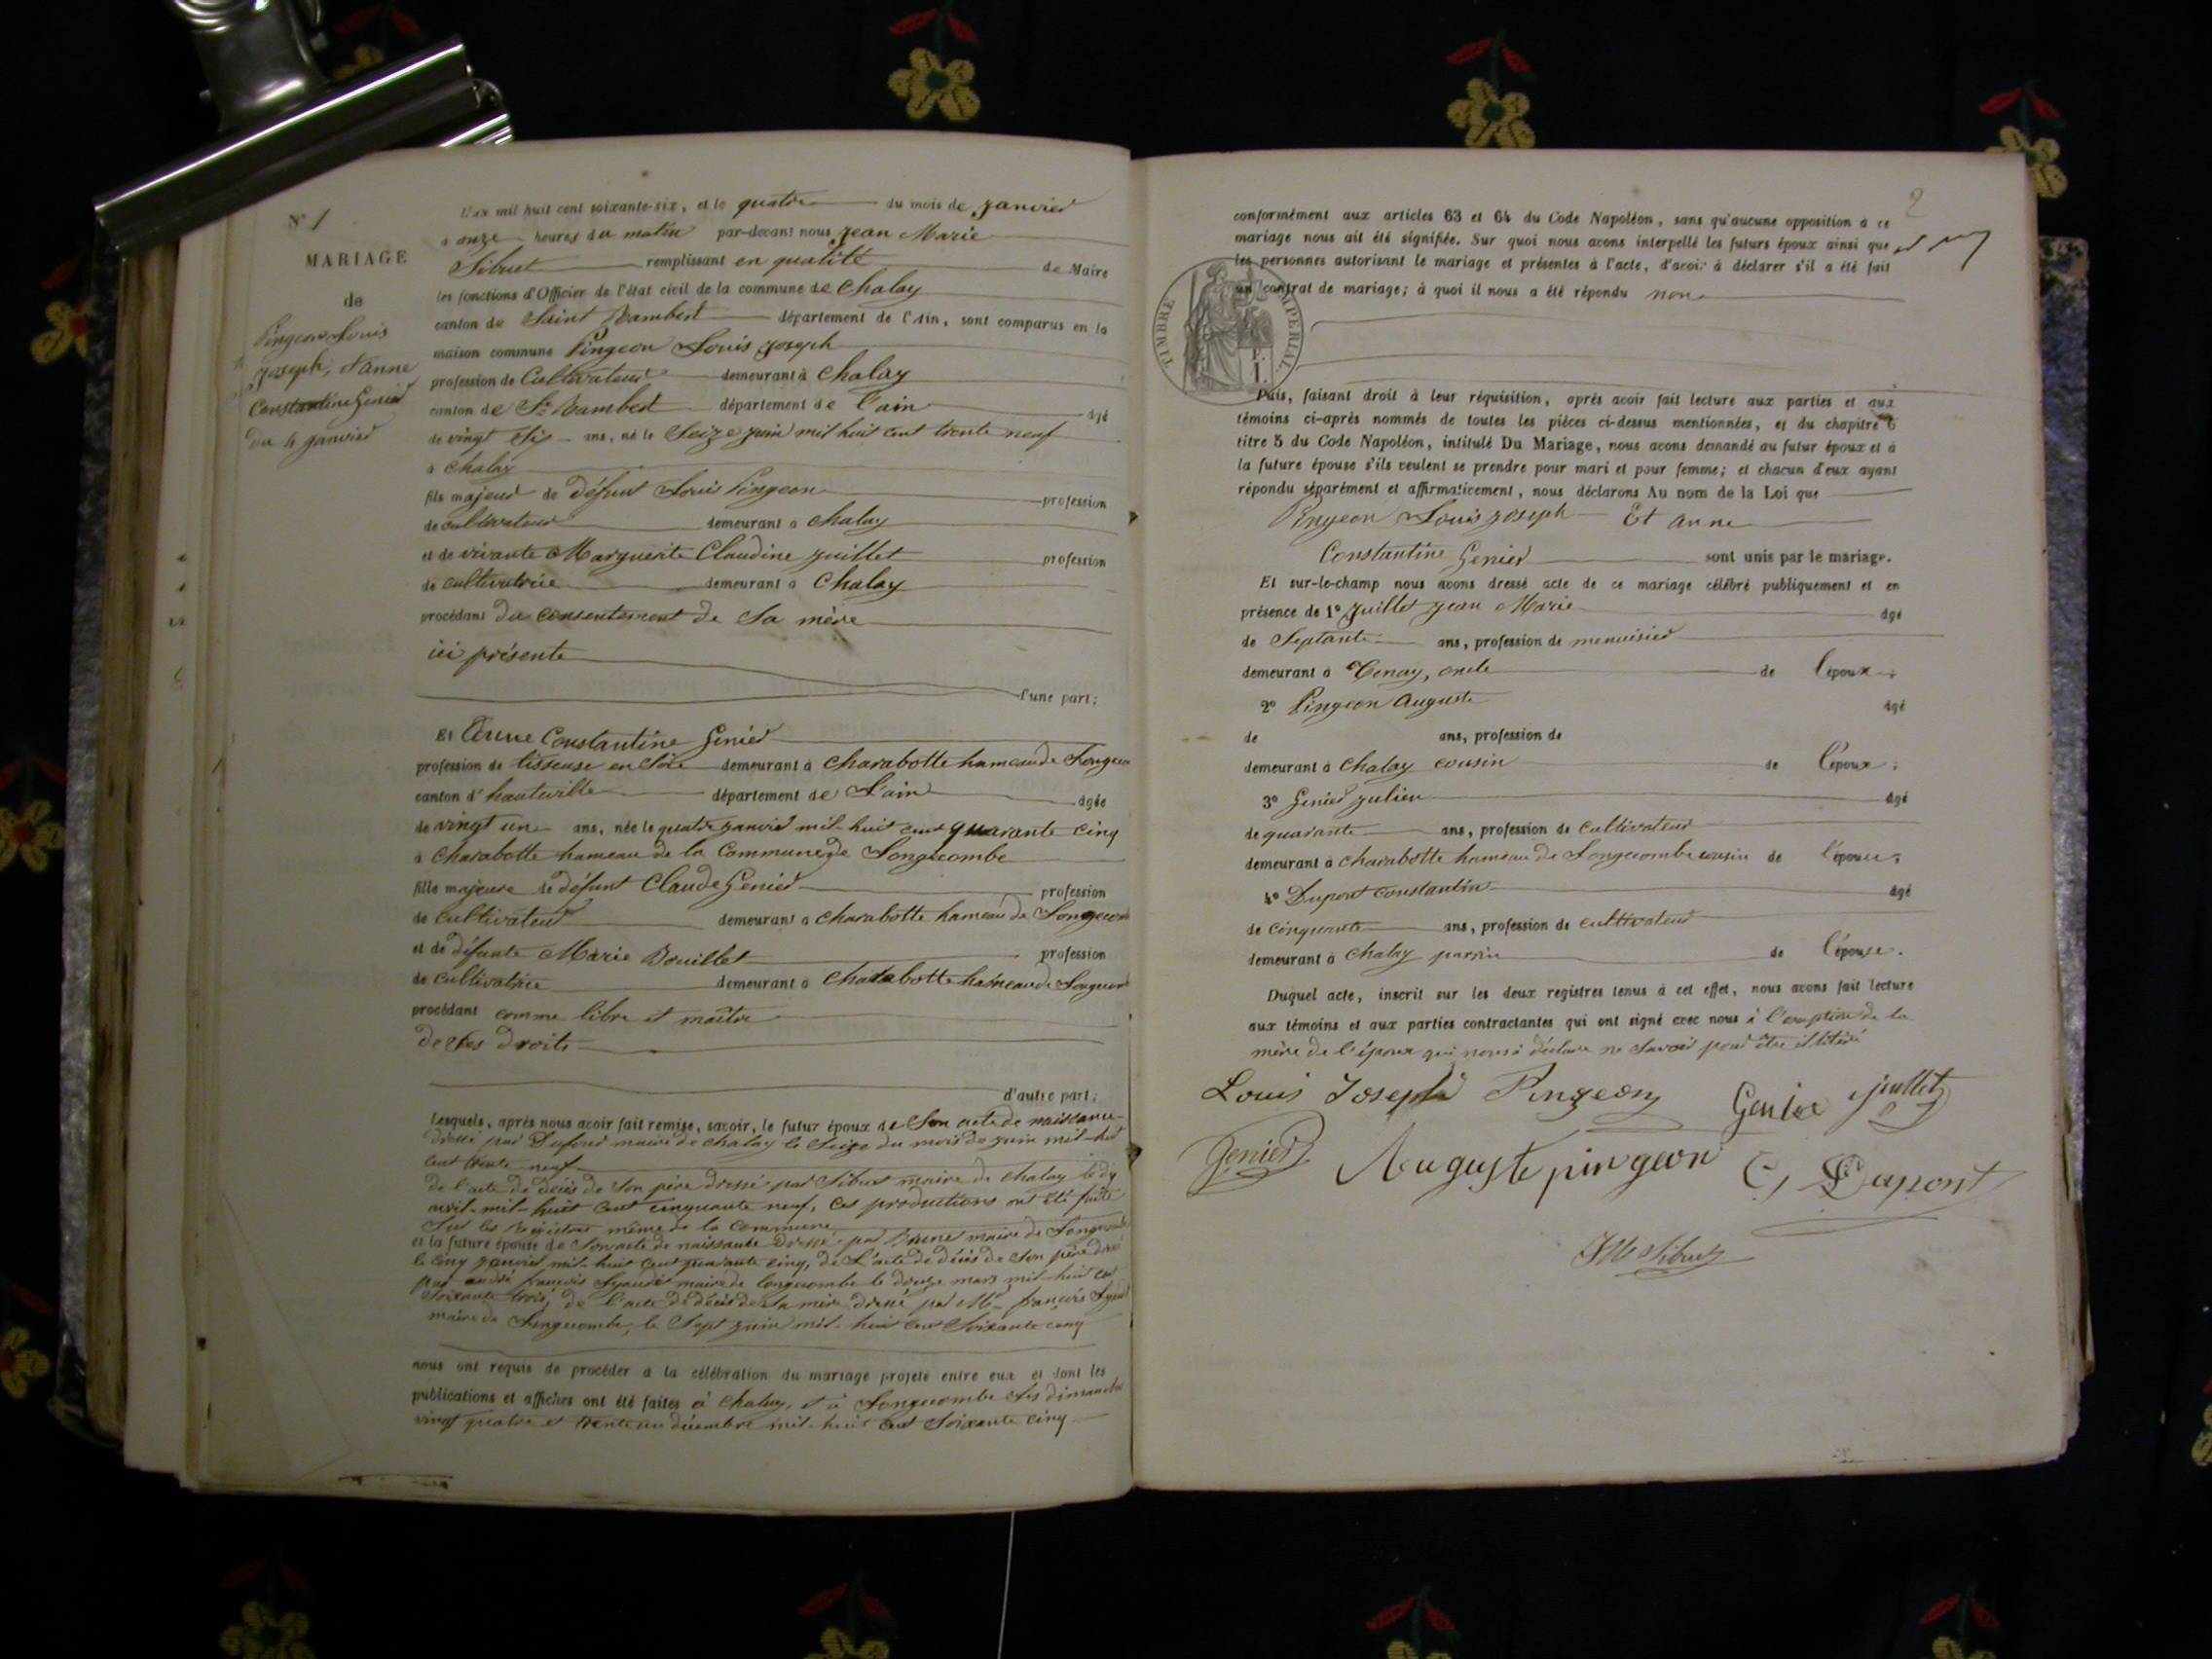 N° 1
MARIAGE
de
Pingeon Louis
Joseph, et anne
Constantine Genier
du 4 janvier
L'an mil huit cent soixante-six, et le quatre du mois de janvier
à onze heures du matin par-devant nous jean Marie
Sibuet remplissant en qualité de Maire
les fonctions d'Officier de l'état civil de la commune de Chaley
canton de Saint Rambert département de l'Ain, sont comparus en la
maison commune Pingeon Louis joseph
profession de Cultivateur demeurant à Chaley
canton de St Rambert département de l'ain âgé
de vingt six ans, né le Seize juin mil huit cent trente neuf
à Chaley
fils majeur de défunt Louis Pingeon profession
de cultivateur demeurant à Chaley
et de vivante Marguerite Claudine juillet profession
de cultivatrice demeurant à Chaley
procédant du consentement de Sa mère
ici présente
d'une part;
Et Anne Constantine Genier
profession de tisseuse en Soie demeurant à Charabotte hameau de Longecom
canton d'hauteville département de L'ain âgée
de vingt un ans, née le quatre janvier mil-huit cent quarante cinq
à Charabotte hameau de la Commune de Longecombe
fille majeure de défunt Claude Genier profession
de Cultivateur demeurant à Charabotte hameau de Longecom
et de défunte Marie Bouillet profession
de Cultivatrice demeurant à Charabotte hameau de Longecom
procédant comme libre et maître
de Ses droits
d'autre part;
Lesquels, après nous avoir fait remise, savoir, le futur époux de Son acte de naissance
dressé par Dufour maire de Chaley le Seize du mois de juin mil-huit
cent trente neuf
de l'acte de décès de Son père dressé par Sibuet maire de Chaley le dix
avril mil-huit cent cinquante neuf, Ces productions ont été faite
Sur les Registres même de la Commune
et la future épouse de Son acte de naissance dressé par maire de Longecombe
le cinq janvier mil-huit cent quarante cinq, de L'acte de décès de Son père dressé
par andré françois maire de longecombe le douze mars mil-huit cent
Soixante trois, de l'acte de décès de Sa mère dressé par Mr françois
maire de Longecombe, le Sept juin mil-huit cent Soixante cinq
nous ont requis de procéder à la célébration du mariage projeté entre eux et dont les
publications et affiches ont été faites à Chaley, et à Longecombe les dimanches
vingt quatre et trente un décembre mil-huit cent Soixante cinq
2
conformément aux articles 63 et 64 du Code Napoléon, sans qu'aucune opposition à ce
mariage nous ait été signifiée. Sur quoi nous avons interpellé les futurs époux ainsi que
les personnes autorisant le mariage et présentes à l'acte, d'avoir à déclarer s'il a été fait
un contrat de mariage; à quoi il nous a été répondu non
TIMBRE IMPERIAL
Puis, faisant droit à leur réquisition, après avoir fait lecture aux parties et aux
témoins ci-après nommés de toutes les pièces ci-dessus mentionnées, et du chapitre 6
titre 5 du Code Napoléon, intitulé Du Mariage, nous avons demandé au futur époux et à
la future épouse s'ils veulent se prendre pour mari et pour femme; et chacun d'eux ayant
répondu séparément et affirmativement, nous déclarons Au nom de la Loi que
Pingeon Louis joseph Et anne
Constantine Genier sont unis par le mariage.
Et sur-le-champ nous avons dressé acte de ce mariage célébré publiquement et en
présence de 1° juillet jean Marie âgé
de Septante ans, profession de menuisier
demeurant à Tenay, oncle de l'époux;
2° Pingeon Auguste âgé
de ans, profession de
demeurant à Chaley cousin de l'époux;
3° Genier julien âgé
de quarante ans, profession de Cultivateur
demeurant à charabotte hameau de Longecombe cousin de l'épouse;
4° Dupont Constantin âgé
de cinquante ans, profession de cultivateur
demeurant à Chaley parrin de l'épouse.
Duquel acte, inscrit sur les deux registres tenus à cet effet, nous avons fait lecture
aux témoins et aux parties contractantes qui ont signé avec nous à l'exeption de la
mère de l'époux qui nous a déclaré ne Savoir pour être illitéré
Louis Joseph Pingeon Genier juillet
Genier Auguste pingeon C, Dupont
JM Sibuet